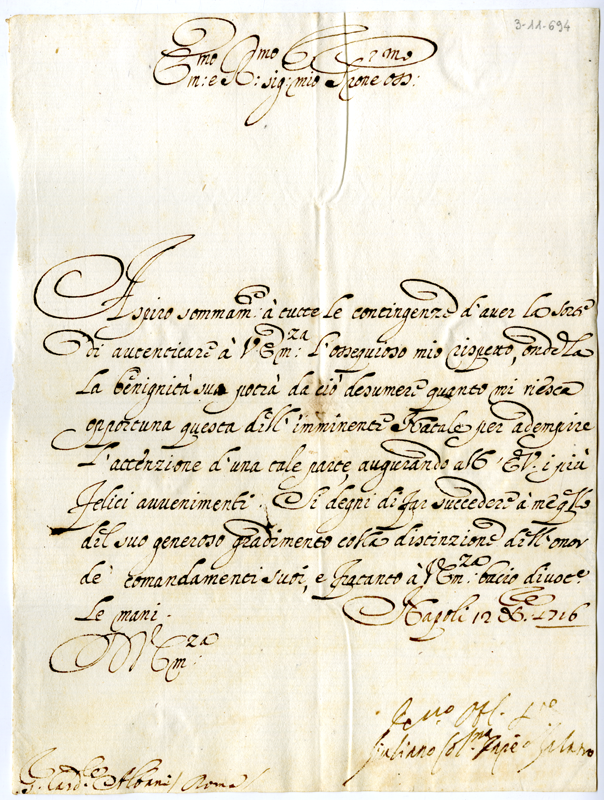 3-11-694
Em.mo e R.mo sig: mio Pr̃one oss:
Aspiro sommam.e à tutte le contingenze d'aver la sorte
di autenticare à V. Em.za l'ossequioso mio rispetto, onde la
La benignità sua potrà da ciò desumere quanto mi riesca
opportuna questa dell'imminente Natale per adempire
l'attenzione d'una tale parte, augurando all' E.V. i più
felici avvenimenti. Si degni di far succedere à me q.llo
del suo generoso gradimento colla distinzione dell'onor
de' comandamenti suoi, e fratanto à V. Em.za bacio divot.e
Le mani.
Napoli 12 Xbre 1716
D V. Em.za
Giuliano Col.na
S.r Card.le Albani / Roma /